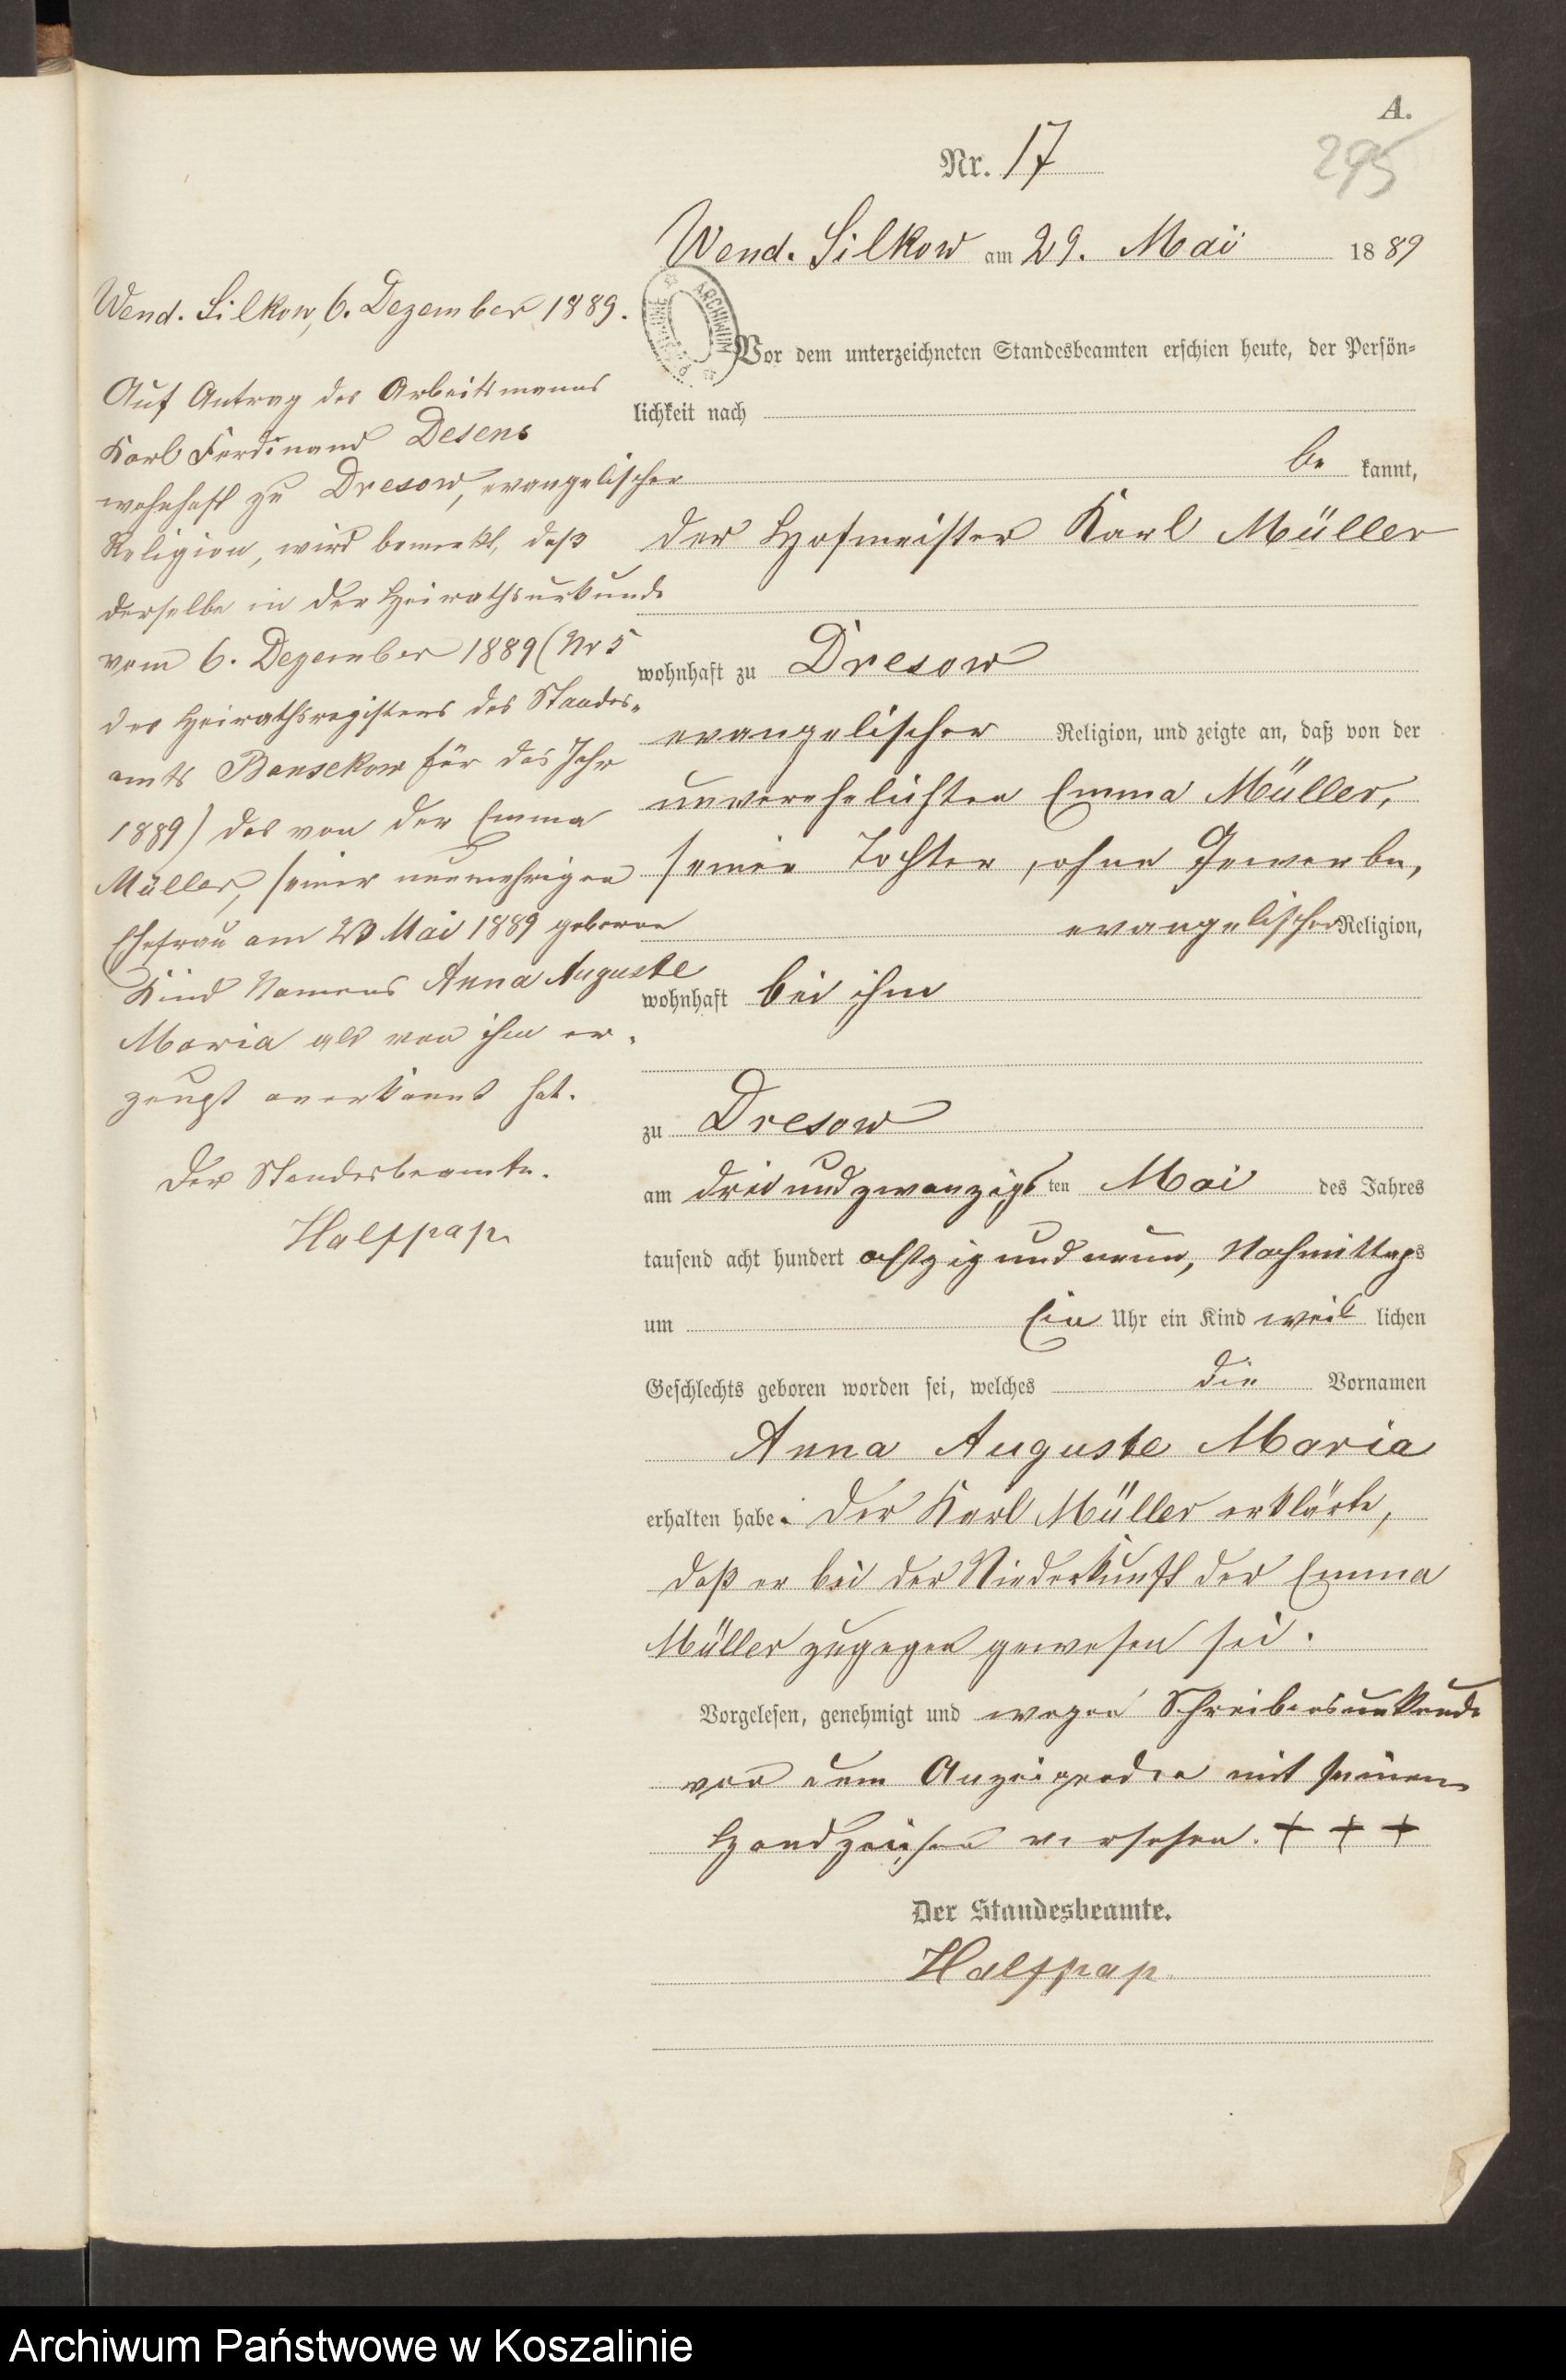 A.
295
Nr. 17
Wend. Silkow am 29. Mai 1889
Vor dem unterzeichneten Standesbeamten erschien heute, der Persön-
lichkeit nach
be kannt,
der Hofmeister Karl Müller
wohnhaft zu Dresow
evangelischer Religion, und zeigte an, daß von der
unverehelichten Emma Müller,
seiner Tochter, ohne Gewerbe,
evangelischer Religion,
wohnhaft bei ihm
zu Dresow
am dreiundzwanzigsten Mai des Jahres
tausend acht hundert achtzig und neun, Nachmittags
um Ein Uhr ein Kind weib lichen
Geschlechts geboren worden sei, welches die Vornamen
Anna Auguste Maria
erhalten habe. Der Karl Müller erklärte,
daß er bei der Niederkunft der Emma
Müller zugegen gewesen sei.
Vorgelesen, genehmigt und wegen Schreibensunkunde
von dem Anzeigenden mit seinem
Handzeichen versehen. + + +
Der Standesbeamte.
Halfpap
Wend. Silkow, 6. Dezember 1889.
Auf Antrag des Arbeitsmanns
Karl Ferdinand Desens
wohnhaft zu Dresow, evangelischer
Religion, wird bemerkt, daß
derselbe in der Heirathsurkunde
vom 6. Dezember 1889 (Nr 5
des Heirathsregisters des Standes-
amts Bansekow für das Jahr
1889) das von der Emma
Müller, seiner nunmehrigen
Ehefrau am 23 Mai 1889 geborene
Kind Namens Anna Auguste
Maria als von ihm er-
zeugt anerkannt hat.
Der Standesbeamte.
Halfpap.
ARCHIWUM
Archiwum Państwowe w Koszalinie